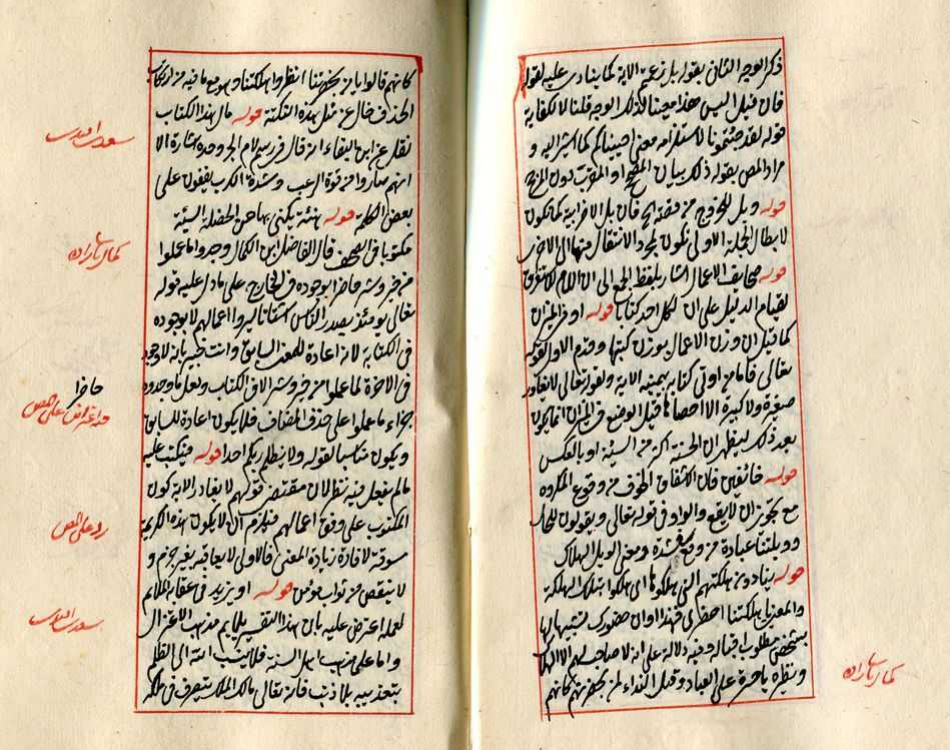 ذكر الوجه الثاني بقوله بل زعمتم الاية كما ينادي عليه لقوله
فان قيل اليس هذا معينا لذلك الوجه قلنا لا لكفاية
قوله لقد جئتمونا لاستلزامه معنى احييناكم كما اشير اليه و
مراد المص بقوله ذلك بيان او المؤقت دون
قوله وبل للخروج من قصة الخ فان بل الاضرابية كما تكون
لابطال الجملة الاولى تكون لمجرد الانتقال منها الى الاخرى
قوله صحايف الاعمال اشار بلفظ الجمع الى ان اللام للاستغراق
لقيام الدليل على ان لكل احد كتابا قوله او في الميزان
كما قيل ان وزن الاعمال بوزن كتبها وقدم الاول لقوله
تعالى فاما من اوتي كتابه بيمينه الاية ولقوله تعالى لا يغادر
صغيرة ولا كبيرة الا احصاها قيل الوضع في الميزان انما يكون
بعد ذلك ليظهر ان الحسنة اكثر من السيئة او بالعكس
قوله خائفين فان الاشفاق الخوف من وقوع المكروه
مع تجويز ان لا يقع والواو في قوله تعالى ويقولون للحال
وويلتنا عبارة من وقع في شدة ومعنى الويل الهلاك
قوله ينادون هلكتهم التي هلكوها اي هلكوا بتلك الهلكة
والمعنى يا هلكتنا احضري فهذا اوان حضورك تشبيها لها
بشخص مطلوب اقباله وفيه دلالة على انه لا صاحب لهم الا الهلاك
ونظيره يا حسرة على العباد وقيل النداء لمن بحضرتهم كانهم
كمال پاشا زاده
كانهم قالوا يا من بحضرتنا انظروا هلكتنا وهو مع ما فيه من ارتكاب
الحذف خال عن مثل هذه النكتة قوله مال هذا الكتاب
نقل عن ابي البقاء انه قال في رسم لام الجر وحده اشارة الا
انهم صاروا من قوة الرعب وشدة الكرب يقفون على
بعض الكلمة قوله هنة يكنى بها عن الخصلة السيئة
مكتوبا في الصحف قال الفاضل ابن الكمال وجدوا ما عملوا
من خير وشر حاضرا بوجوده في الخارج على ما دل عليه قوله
تعالى يومئذ يصدر الناس اشتاتا ليروا اعمالهم لا بوجوده
في الكتابة لانه اعادة للمعنى السابق وانت خبير بانه لا وجود
في الاخرة لما عملوا من خير وشر الا في الكتاب ولعل ما وجدوه
جزاء ما عملوا على حذف المضاف فلا يكون اعادة للسابق
ويكون مناسبا لقوله ولا يظلم ربك احدا قوله فيكتب عليه
مالم يفعل فيه نظر لان مقتضى قولهم لا يغادر الاية كون
المكتوب على وفق اعمالهم فيلزم ان لا يكون هذه الكريمة
مسوقة لافادة زيادة المعنى فالاولى لا يعاقبه بغير جرم و
لا ينقص من ثواب مؤمن قوله او يزيد في عقابه الملايم
لعمله اعترض عليه بان هذا التفسير يلايم مذهب الاعتزال
واما على مذهب اهل السنة فلا ينسب الله الى الظلم
بتعذيبه بلا ذنب فانه تعالى مالك الملك يتصرف في ملكه
سعدي افندي
كمال پاشا زاده
حاضرا
فيه اعتراض على المص
رد على المص
سعدي افندي